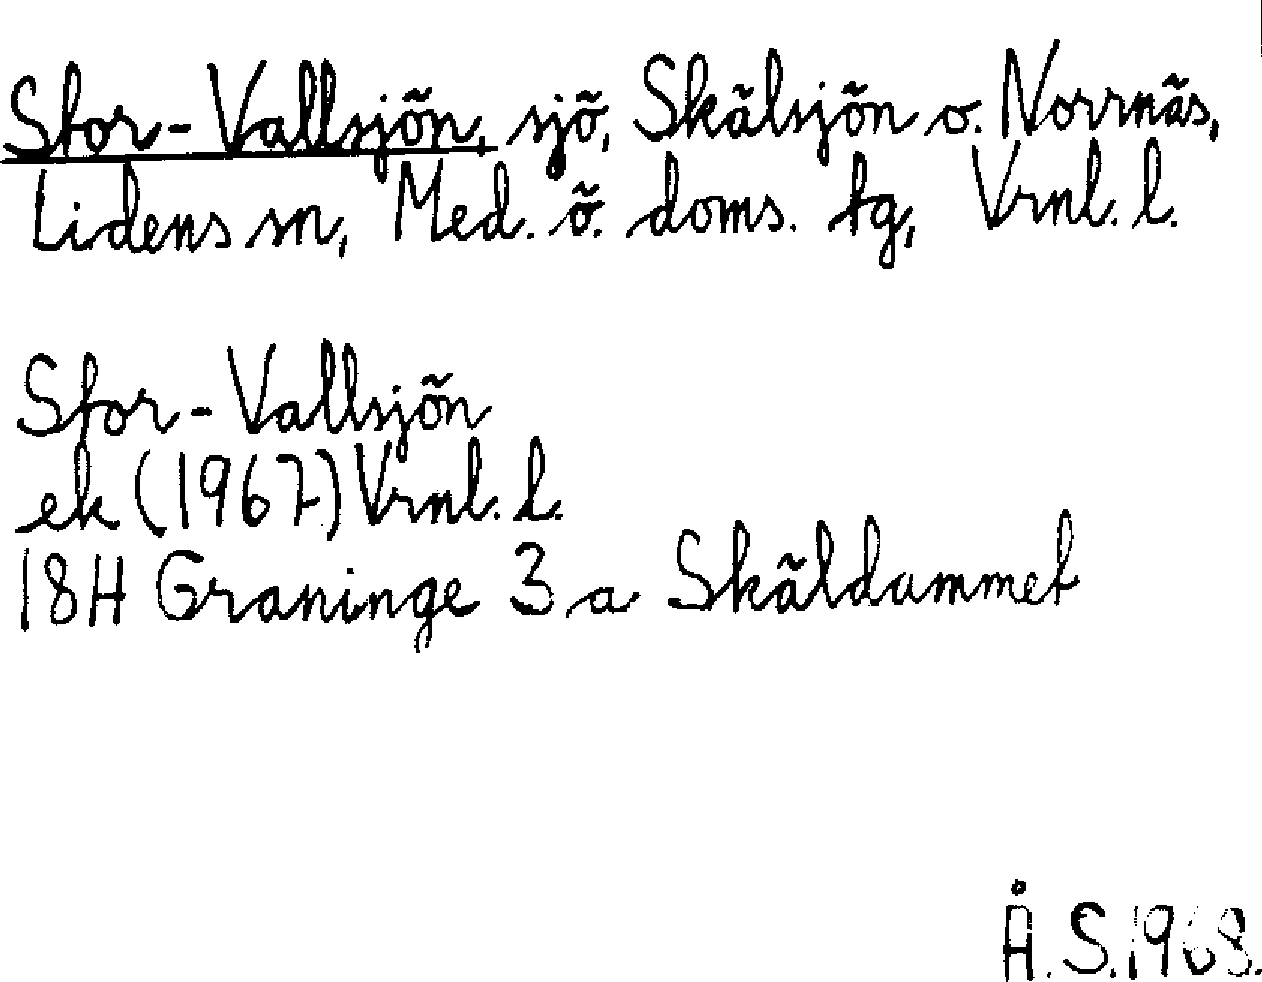 Stor-Vallsjön, sjö, Skälsjön o. Norrnäs,
Lidens sn, Med. ö. doms. tg, Vrnl. l.
Stor-Vallsjön
ek (1967) Vrnl. l.
18H Graninge 3 a Skäldammet
Å.S.1968.